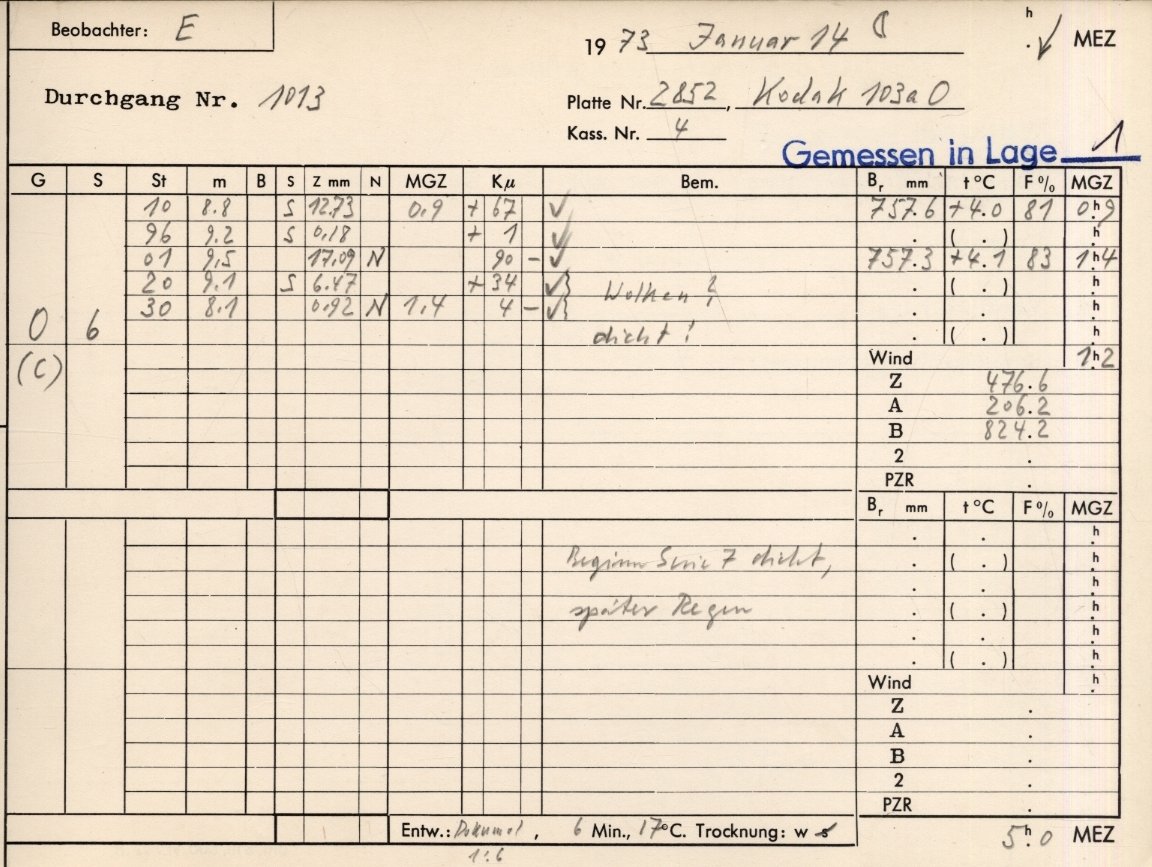 Beobachter: E
1973 Januar 14 h . MEZ
Durchgang Nr. 1013
Platte Nr. 2852, Kodak 103a O
Kass. Nr. 4
Gemessen in Lage 1
G S St m B S Z mm N MGZ Kμ Bem. Br mm t °C F % MGZ
10 8.8 S 12.73 0.9 + 67 ✓ 757.6 +4.0 81 0h.9
96 9.2 S 0.18 + 1 ✓ . ( . ) h.
01 9.5 17.09 N 90 - ✓ 757.3 +4.1 83 1h.4
20 9.1 S 6.47 + 34 ✓} Wolken . ( . ) h.
30 8.1 0.92 N 1.4 4 - ✓} . . h.
0 6 dicht! . ( . ) h.
(C) Wind 1h.2
Z 476.6
A 206.2
B 824.2
2 .
PZR .
Br mm t °C F % MGZ
. . h.
Beginn Serie 7 dicht, . ( . ) h.
. . h.
später Regen . ( . ) h.
. . h.
. ( . ) h.
Wind h.
Z .
A .
B .
2 .
PZR .
Entw.: Dokumol, 6 Min., 17°C. Trocknung: w s
5h.0 MEZ
1:6